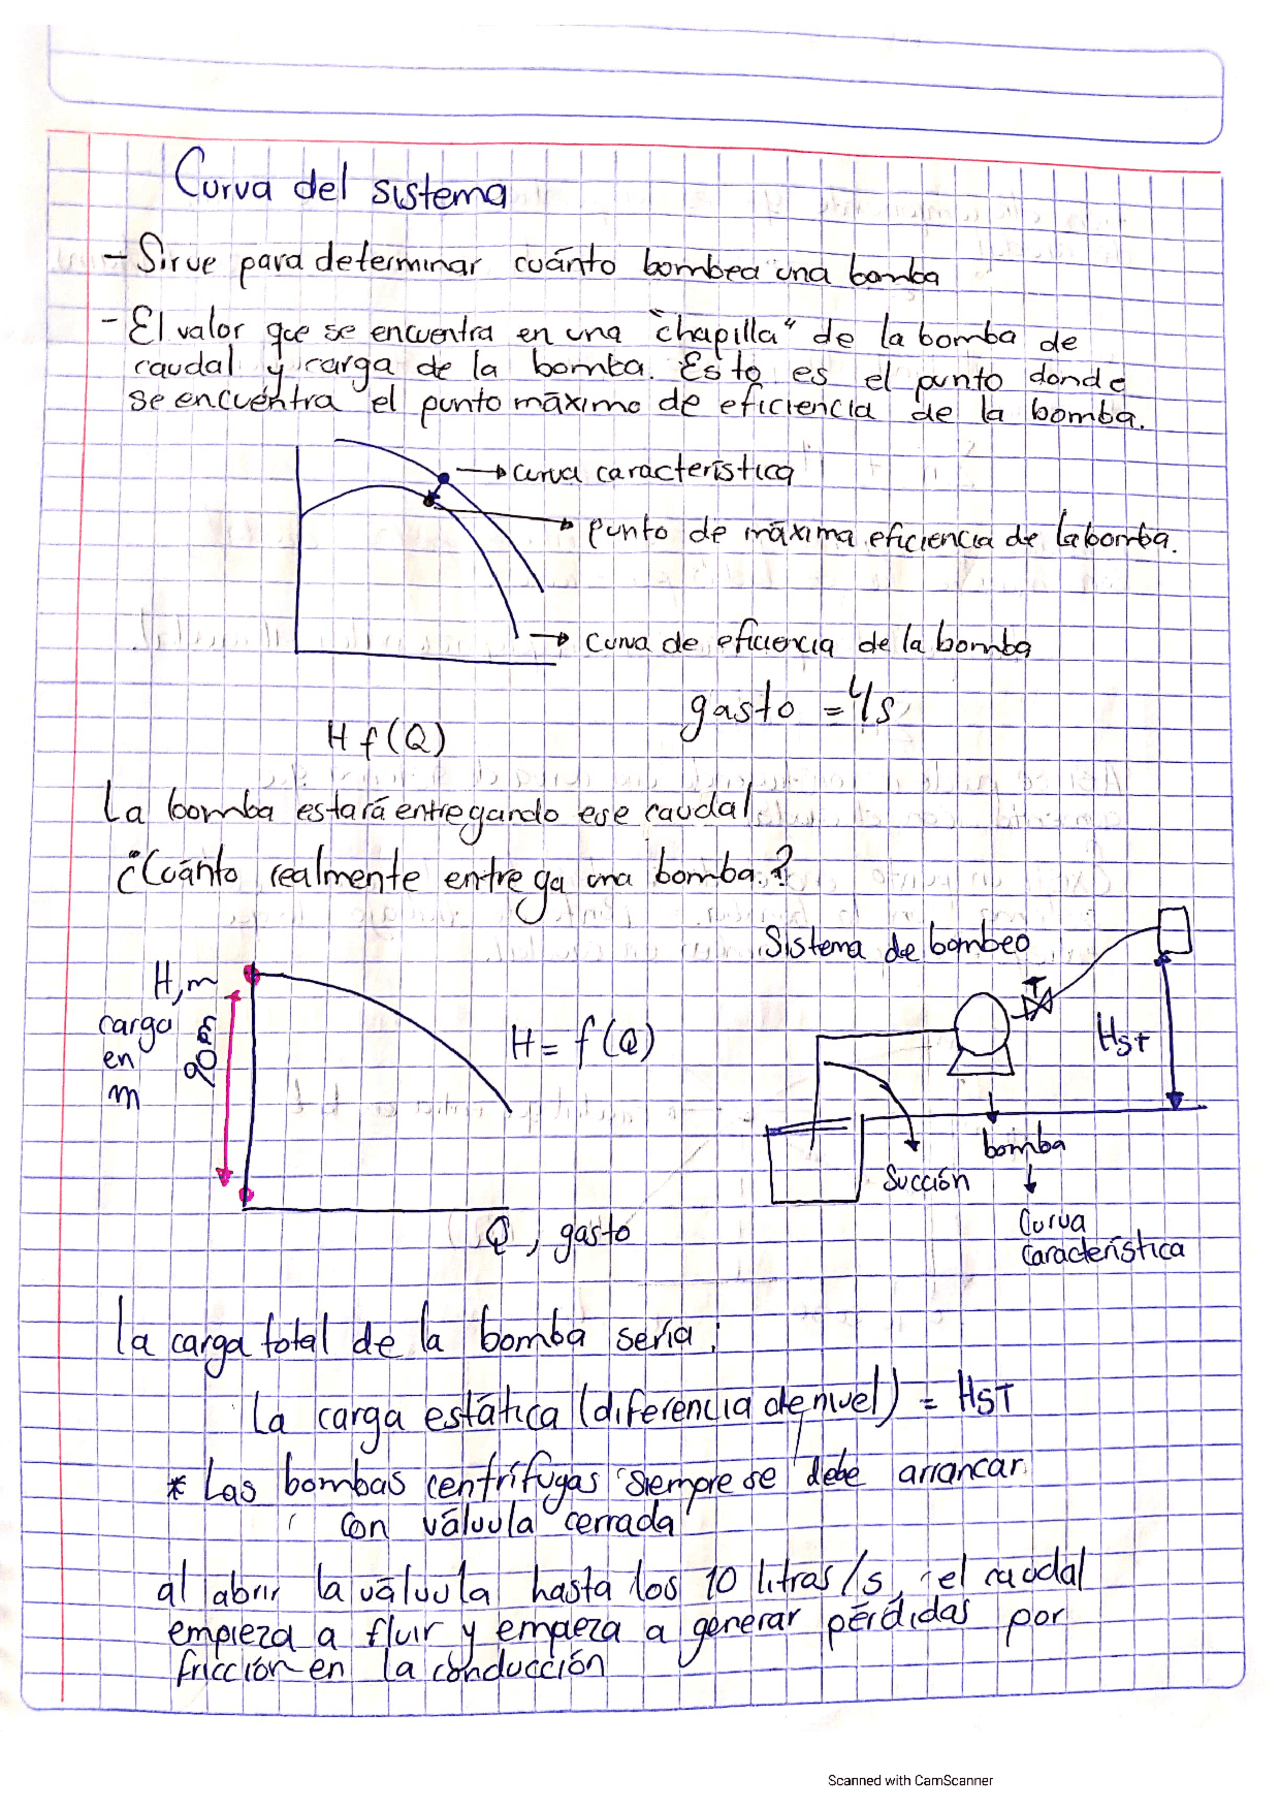 Curva del sistema
- Sirve para determinar cuánto bombea una bomba
- El valor que se encuentra en una "chapilla" de la bomba de
caudal y carga de la bomba. Esto es el punto donde
se encuentra el punto máximo de eficiencia de la bomba.
curva característica
punto de máxima eficiencia de la bomba.
curva de eficiencia de la bomba
gasto = L/s
H f(Q)
La bomba estará entregando ese caudal
¿Cuánto realmente entrega una bomba?
Sistema de bombeo
H, m
carga
en
m
20 m
H = f(Q)
HST
bomba
Succión
Curva
característica
Q, gasto
la carga total de la bomba sería:
la carga estática (diferencia de nivel) = HST
* Las bombas centrífugas siempre se debe arrancar
con válvula cerrada
al abrir la válvula hasta los 10 litros/s, el caudal
empieza a fluir y empieza a generar pérdidas por
fricción en la conducción
Scanned with CamScanner